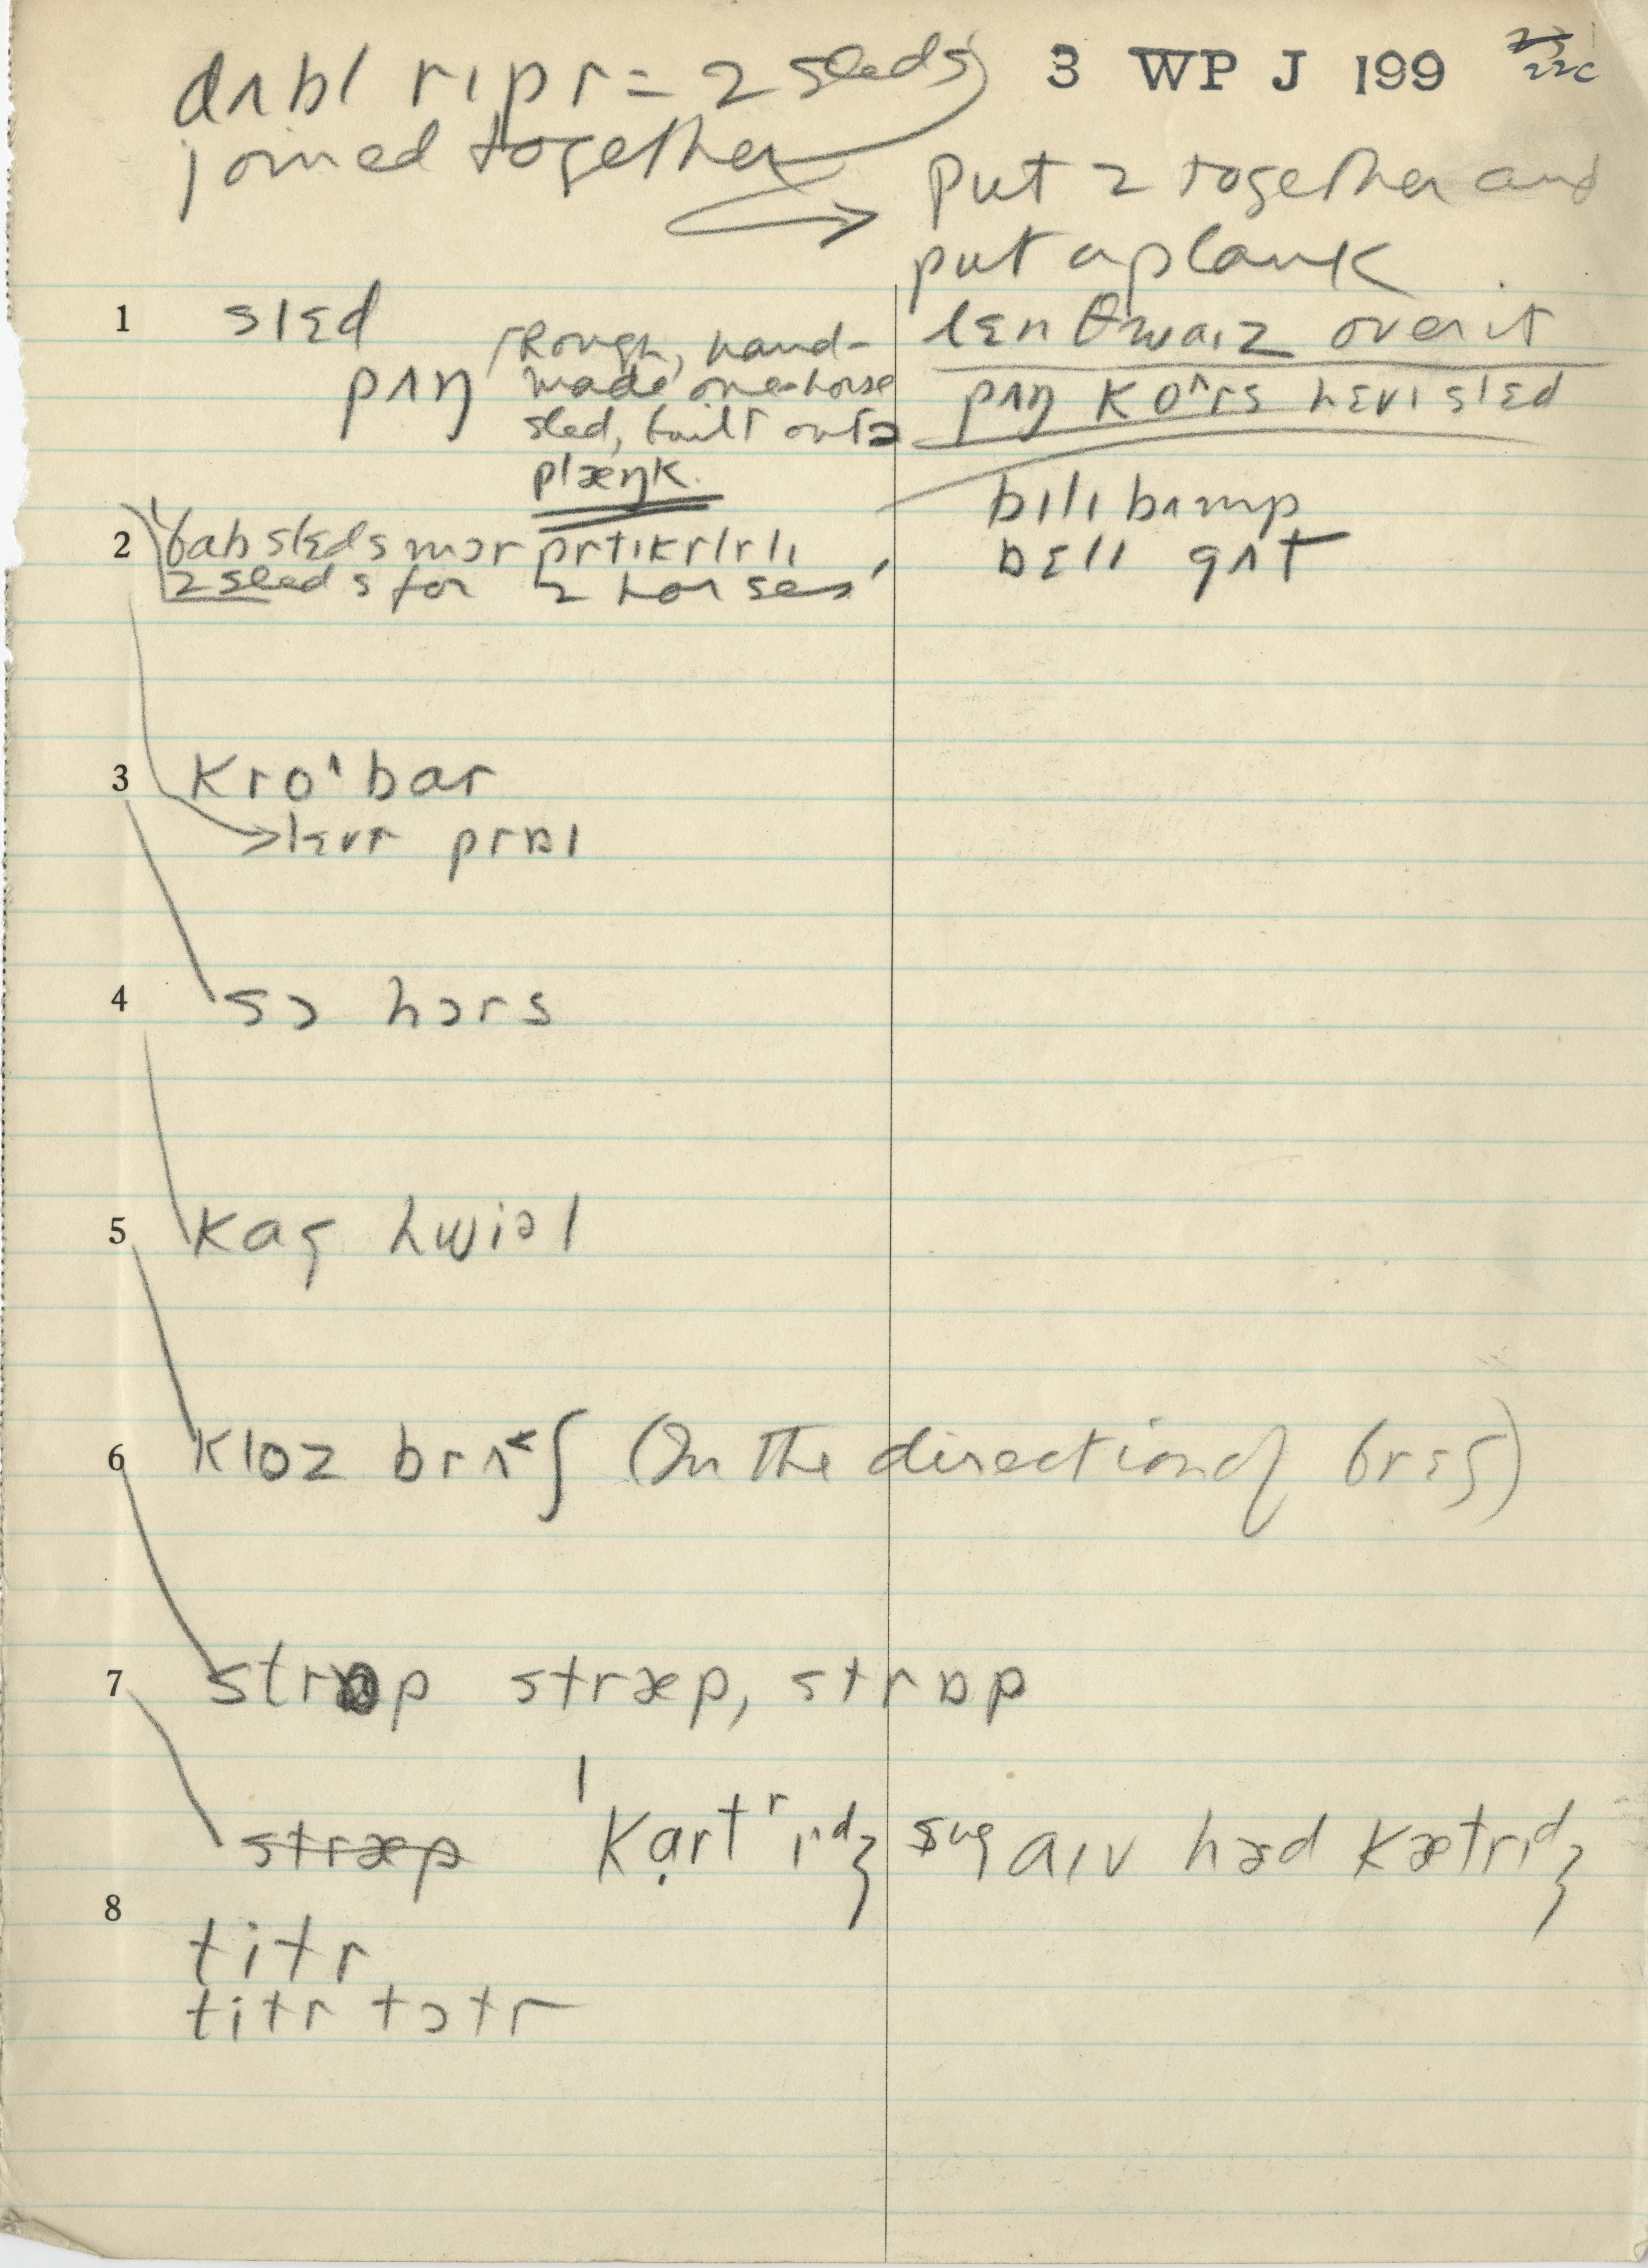 dʌbl rɪpr = 2 sleds
joined together
3 WP J 199
22C
put 2 together and
put a plank
lɛnθwaɪz over it
1 slɛd
pʌŋ Rough, hand-
made one-horse
sled, built outə
plæŋk.
pʌŋ ko^rs hɛvɪ slɛd
bɪlɪ bʌmp
bɛlɪ gʌt
2 bab slɛds mɔr prtɪkrlrlɪ
2 sleds for 2 horses
3 kro^bar
lɛvr prɒɪ
4 sɔ hɔrs
5 kag hwiəl
6 kloz brʌ<ʃ (In the direction of brɛʃ)
7 strɒp stræp, strɒp
stræp kartrɪdʒ sug aɪv hæd kætrɪdʒ
8
titr
titr tɔtr